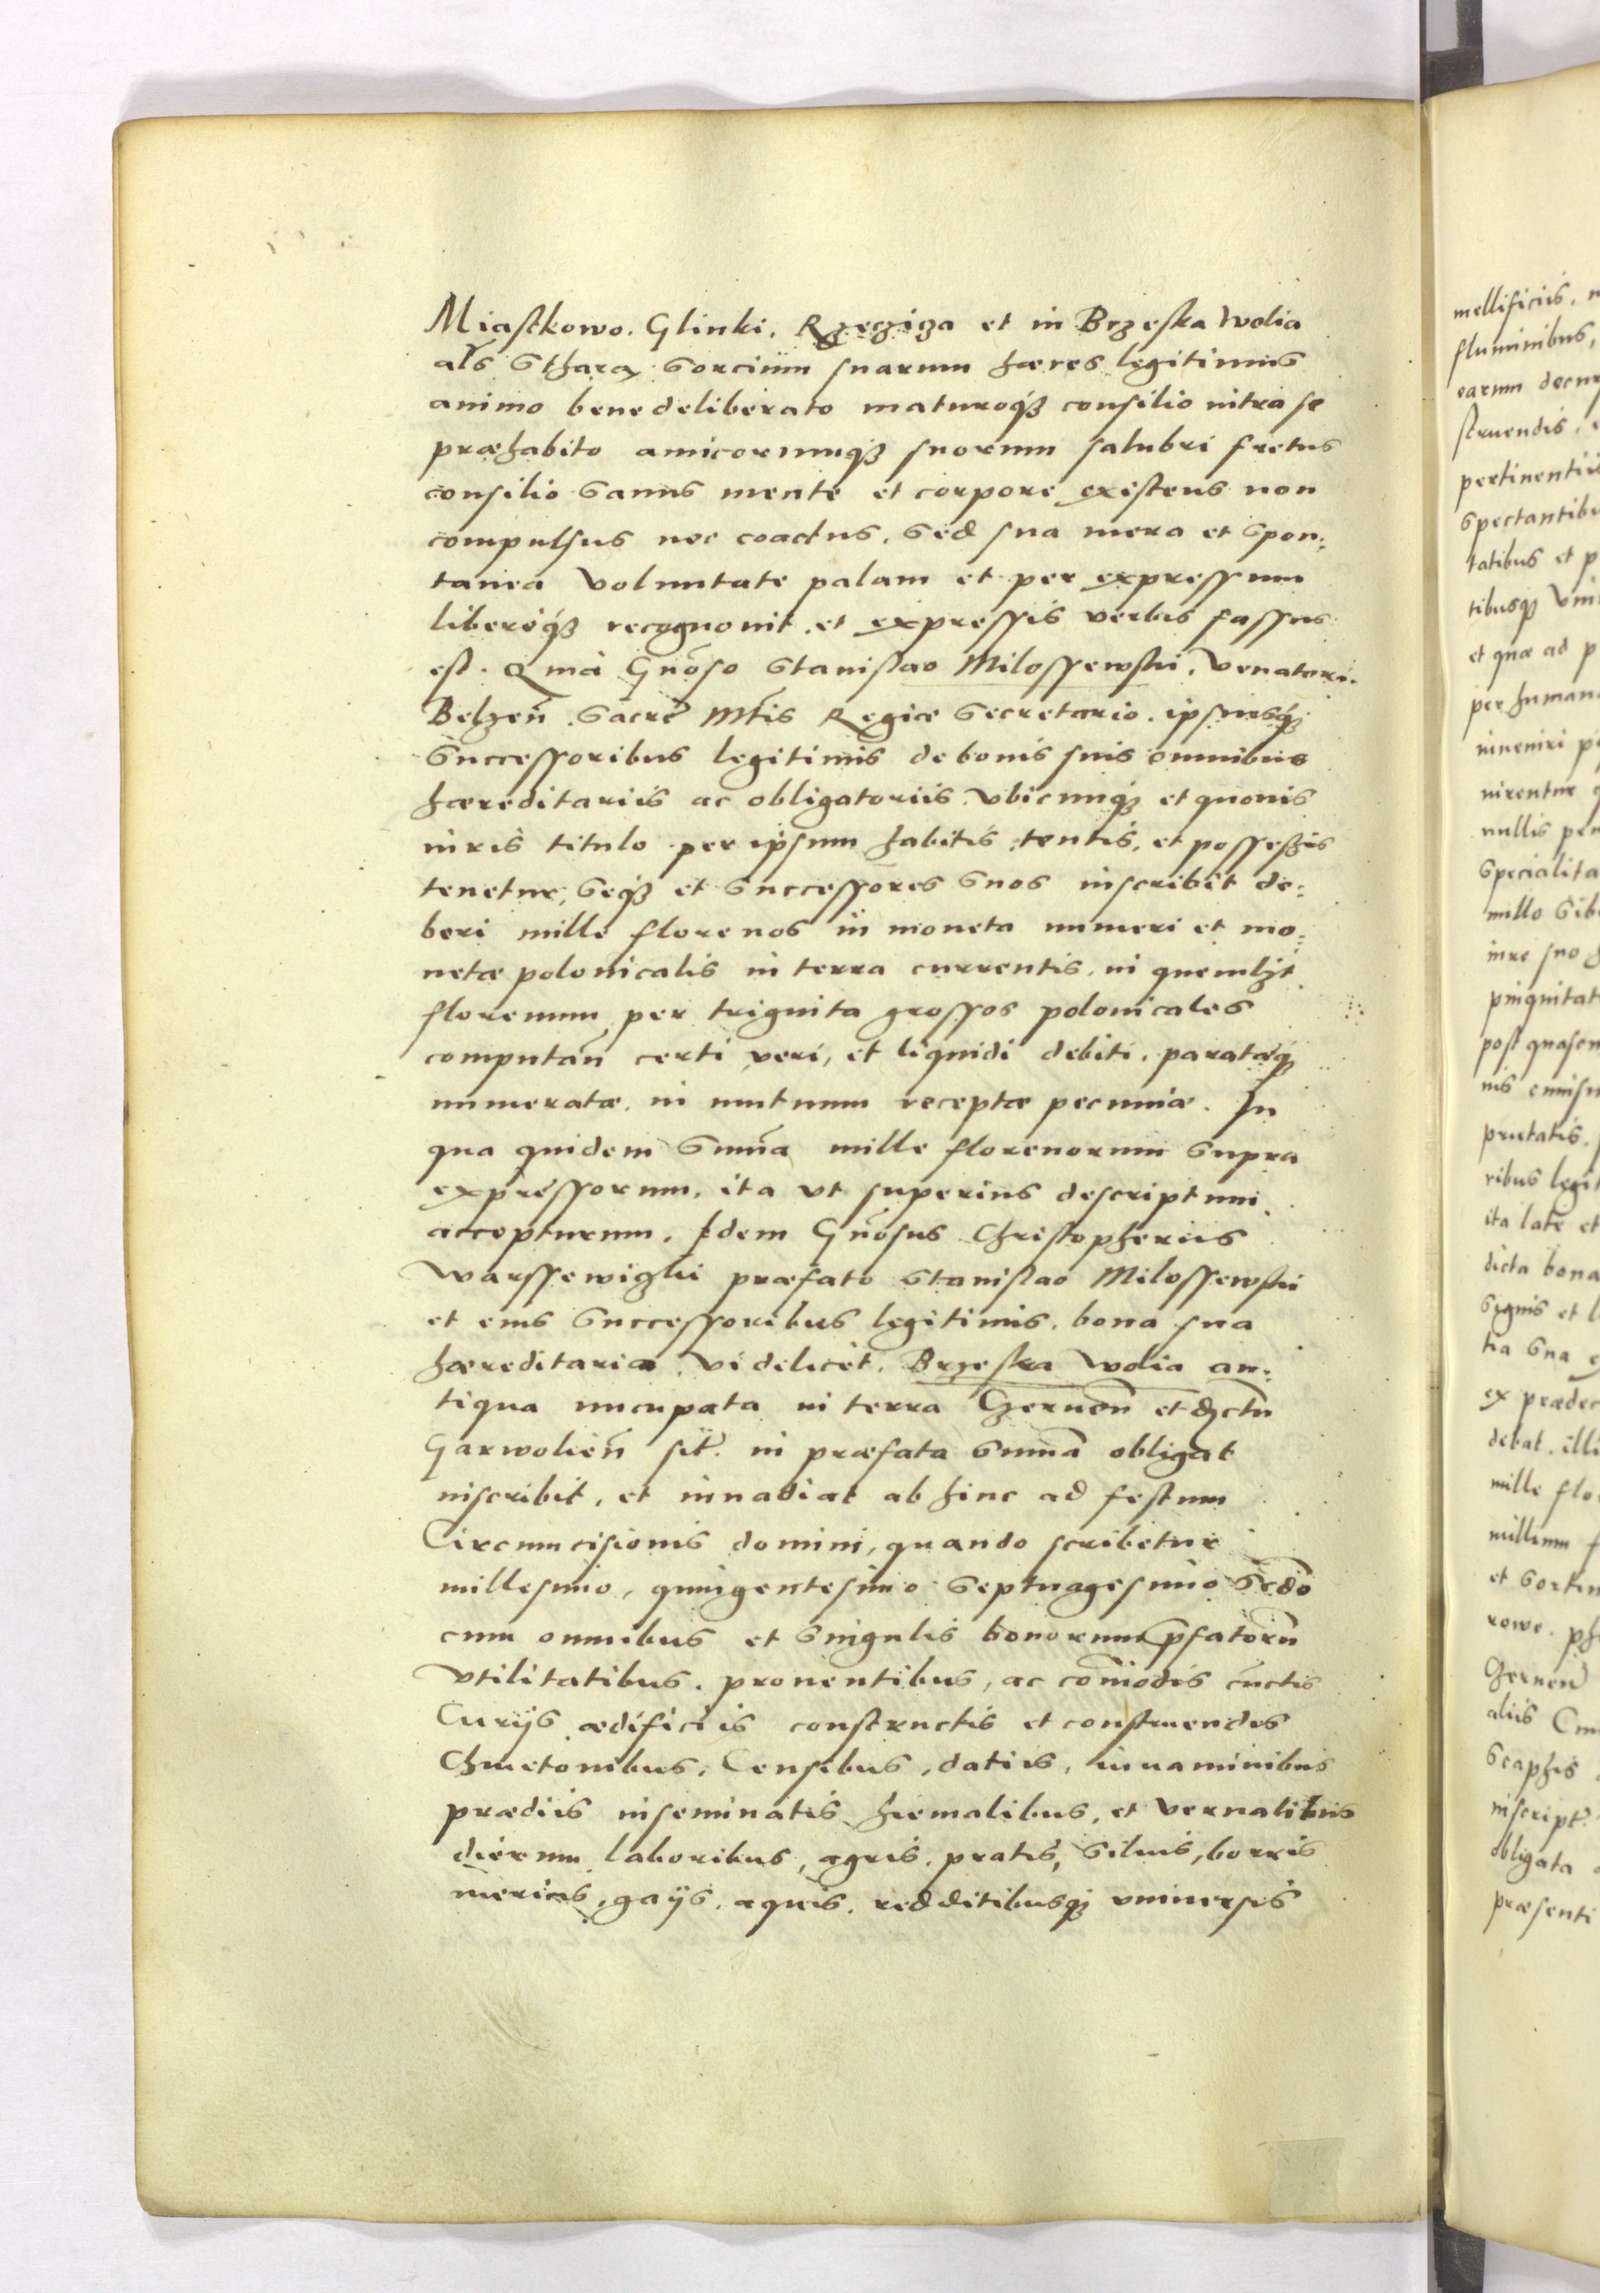 Miastkowo. Glinki. Rzeziza et in Brzeska Wolia
als Sthara Sorcium suarum hæres legitimus
animo bene deliberato maturoq₃ consilio intra se
præhabito amicorumq₃ suorum salubri fretus
consilio sanus mente et corpore existens non
compulsus nec coactus. sed sua mera et spon:
tanea voluntate palam et per expressum
libereq₃ recognouit et expressis verbis fassus
est. Quia Gnoso Stanislao Milossewski. Venatori.
Belzen Sacre Mtis Regiæ Secretario. ipsiusq₃
successoribus legitimis de bonis suis omnibus
hæreditariis ac obligatoriis vbicunq₃ et quouis
iuris titulo per ipsum habitis tentis, et possessis
tenetur, seq₃ et successores suos inscribit de:
beri mille florenos in moneta numeri et mo:
netæ polonicalis in terra currentis. in quemlzt
florenum per triginta grossos polonicales
computan certi veri, et liquidi debiti. paratæq₃
numeratæ. in mutuum receptæ pecuniæ. In
qua quidem suma mille florenorum supra
expressorum. ita vt superius descriptum
accepturum. Idem Gnosus Christopherus
Warssewizki præfato Stanislao Milossewski
et eius successoribus legitimis. bona sua
hæreditaria. videlicet. Brzeska Wolia an:
tiqua nucupata in terra Czernen et dzctu
Garwolien sit. in præfata suma obligat
inscribit, et inuadiat ab hinc ad festum
Circumcisionis domini, quando scribetur
millesimo, quingentesimo septuagesimo sedo
cum omnibus et singulis bonorum pfatoru
vtilitatibus. prouentibus, ac comodis cuctis
Curijs ædificiis constructis et construendis
Chmetonibus, Censibus, datiis, iuuaminibus
prædiis inseminatis hiemalibus, et vernalibus
dierum laboribus, agris. pratis, siluis, borris
mericis, gaijs. aquis. redditibusq₃ vniuersis
mellificiis.
fluminibus,
earum
struendis.
pertinentiis
tatibus et p
et quæ ad p
nullis
post
ita late et
dicta bona
signis et
debat.
mille
et
rowe.
obligata
præsenti